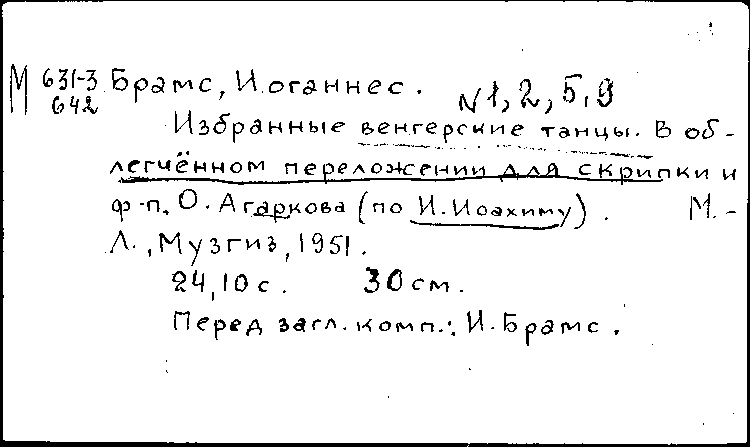 М 631-3 Брамс, Иоганнес. N 1, 2, 5, 9
642
Избранные венгерские танцы. В об-
легчённом переложении для скрипки и
ф-п. О. Агаркова (по И. Иоахиму). М. -
Л., Музгиз, 1951.
24, 10 с. 30 см.
Перед загл. комп.: И. Брамс.